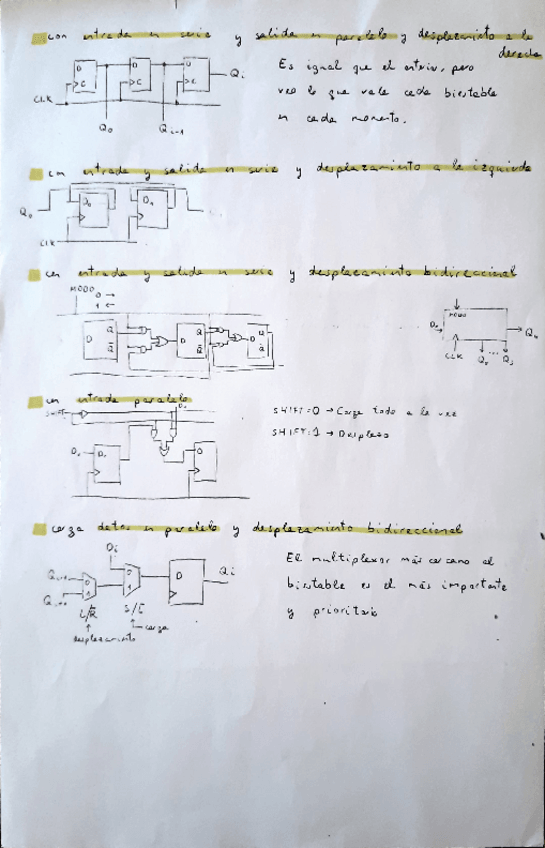 con entrada en serie y salida en paralelo y desplazamiento a la
derecha
Es igual que el anterior, pero
veo lo que vale cada biestable
en cada momento.
D
C
D
C
D
C
Qi
CLK
Q0
Qi-1
con entrada y salida en serie y desplazamiento a la izquierda
Q0
CLK
con entrada y salida en serie y desplazamiento bidireccional
MODO 0 →
1 ←
D
Q
Q̅
D
Q
Q̅
D
Q
Q̅
MODO
CLK
con entrada paralelo
SHIFT
SHIFT=0 → Carga todo a la vez
SHIFT=1 → Desplaza
carga datos en paralelo y desplazamiento bidireccional
Di
D
Qi
0
1
0
1
L/R̅
S/L̅
desplazamiento
carga
El multiplexor más cercano al
biestable es el más importante
y prioritario